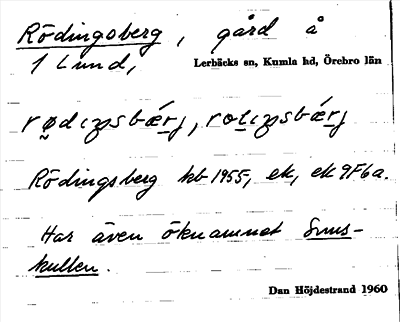 Rödingsberg, gård å
1 Lund,
Lerbäcks sn, Kumla hd, Örebro län
Rödingsberg kb 1955, ek, ek 9F6a.
Har även öknamnet Snus-
kullen.
Dan Höjdestrand 1960